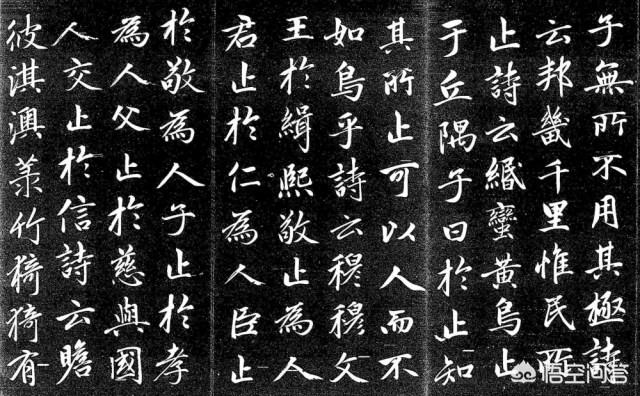 子無所不用其極詩
云邦畿千里惟民所
止詩云緡蠻黃鳥止
于丘隅子曰於止知
其所止可以人而不
如鳥乎詩云穆穆文
王於緝熙敬止為人
君止於仁為人臣止
於敬為人子止於孝
為人父止於慈與國
人交止於信詩云瞻
彼淇澳菉竹猗猗有
悟空问答